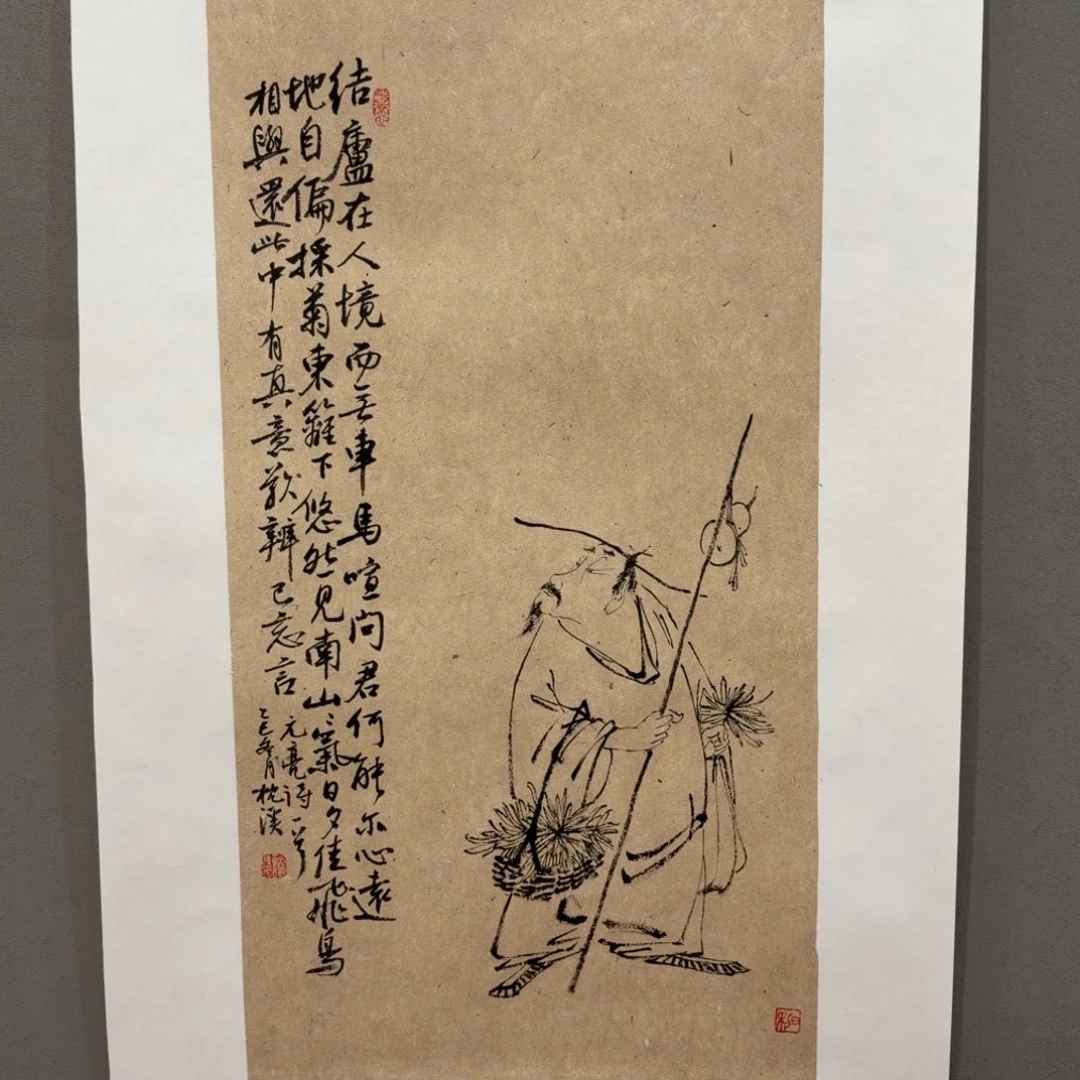 結廬在人境而無車馬喧問君何能尔心遠
地自偏採菊東籬下悠然見南山〻氣日夕佳飛鳥
相與還此中有真意欲辨已忘言
元亮詩一首
乙巳冬月枕溪